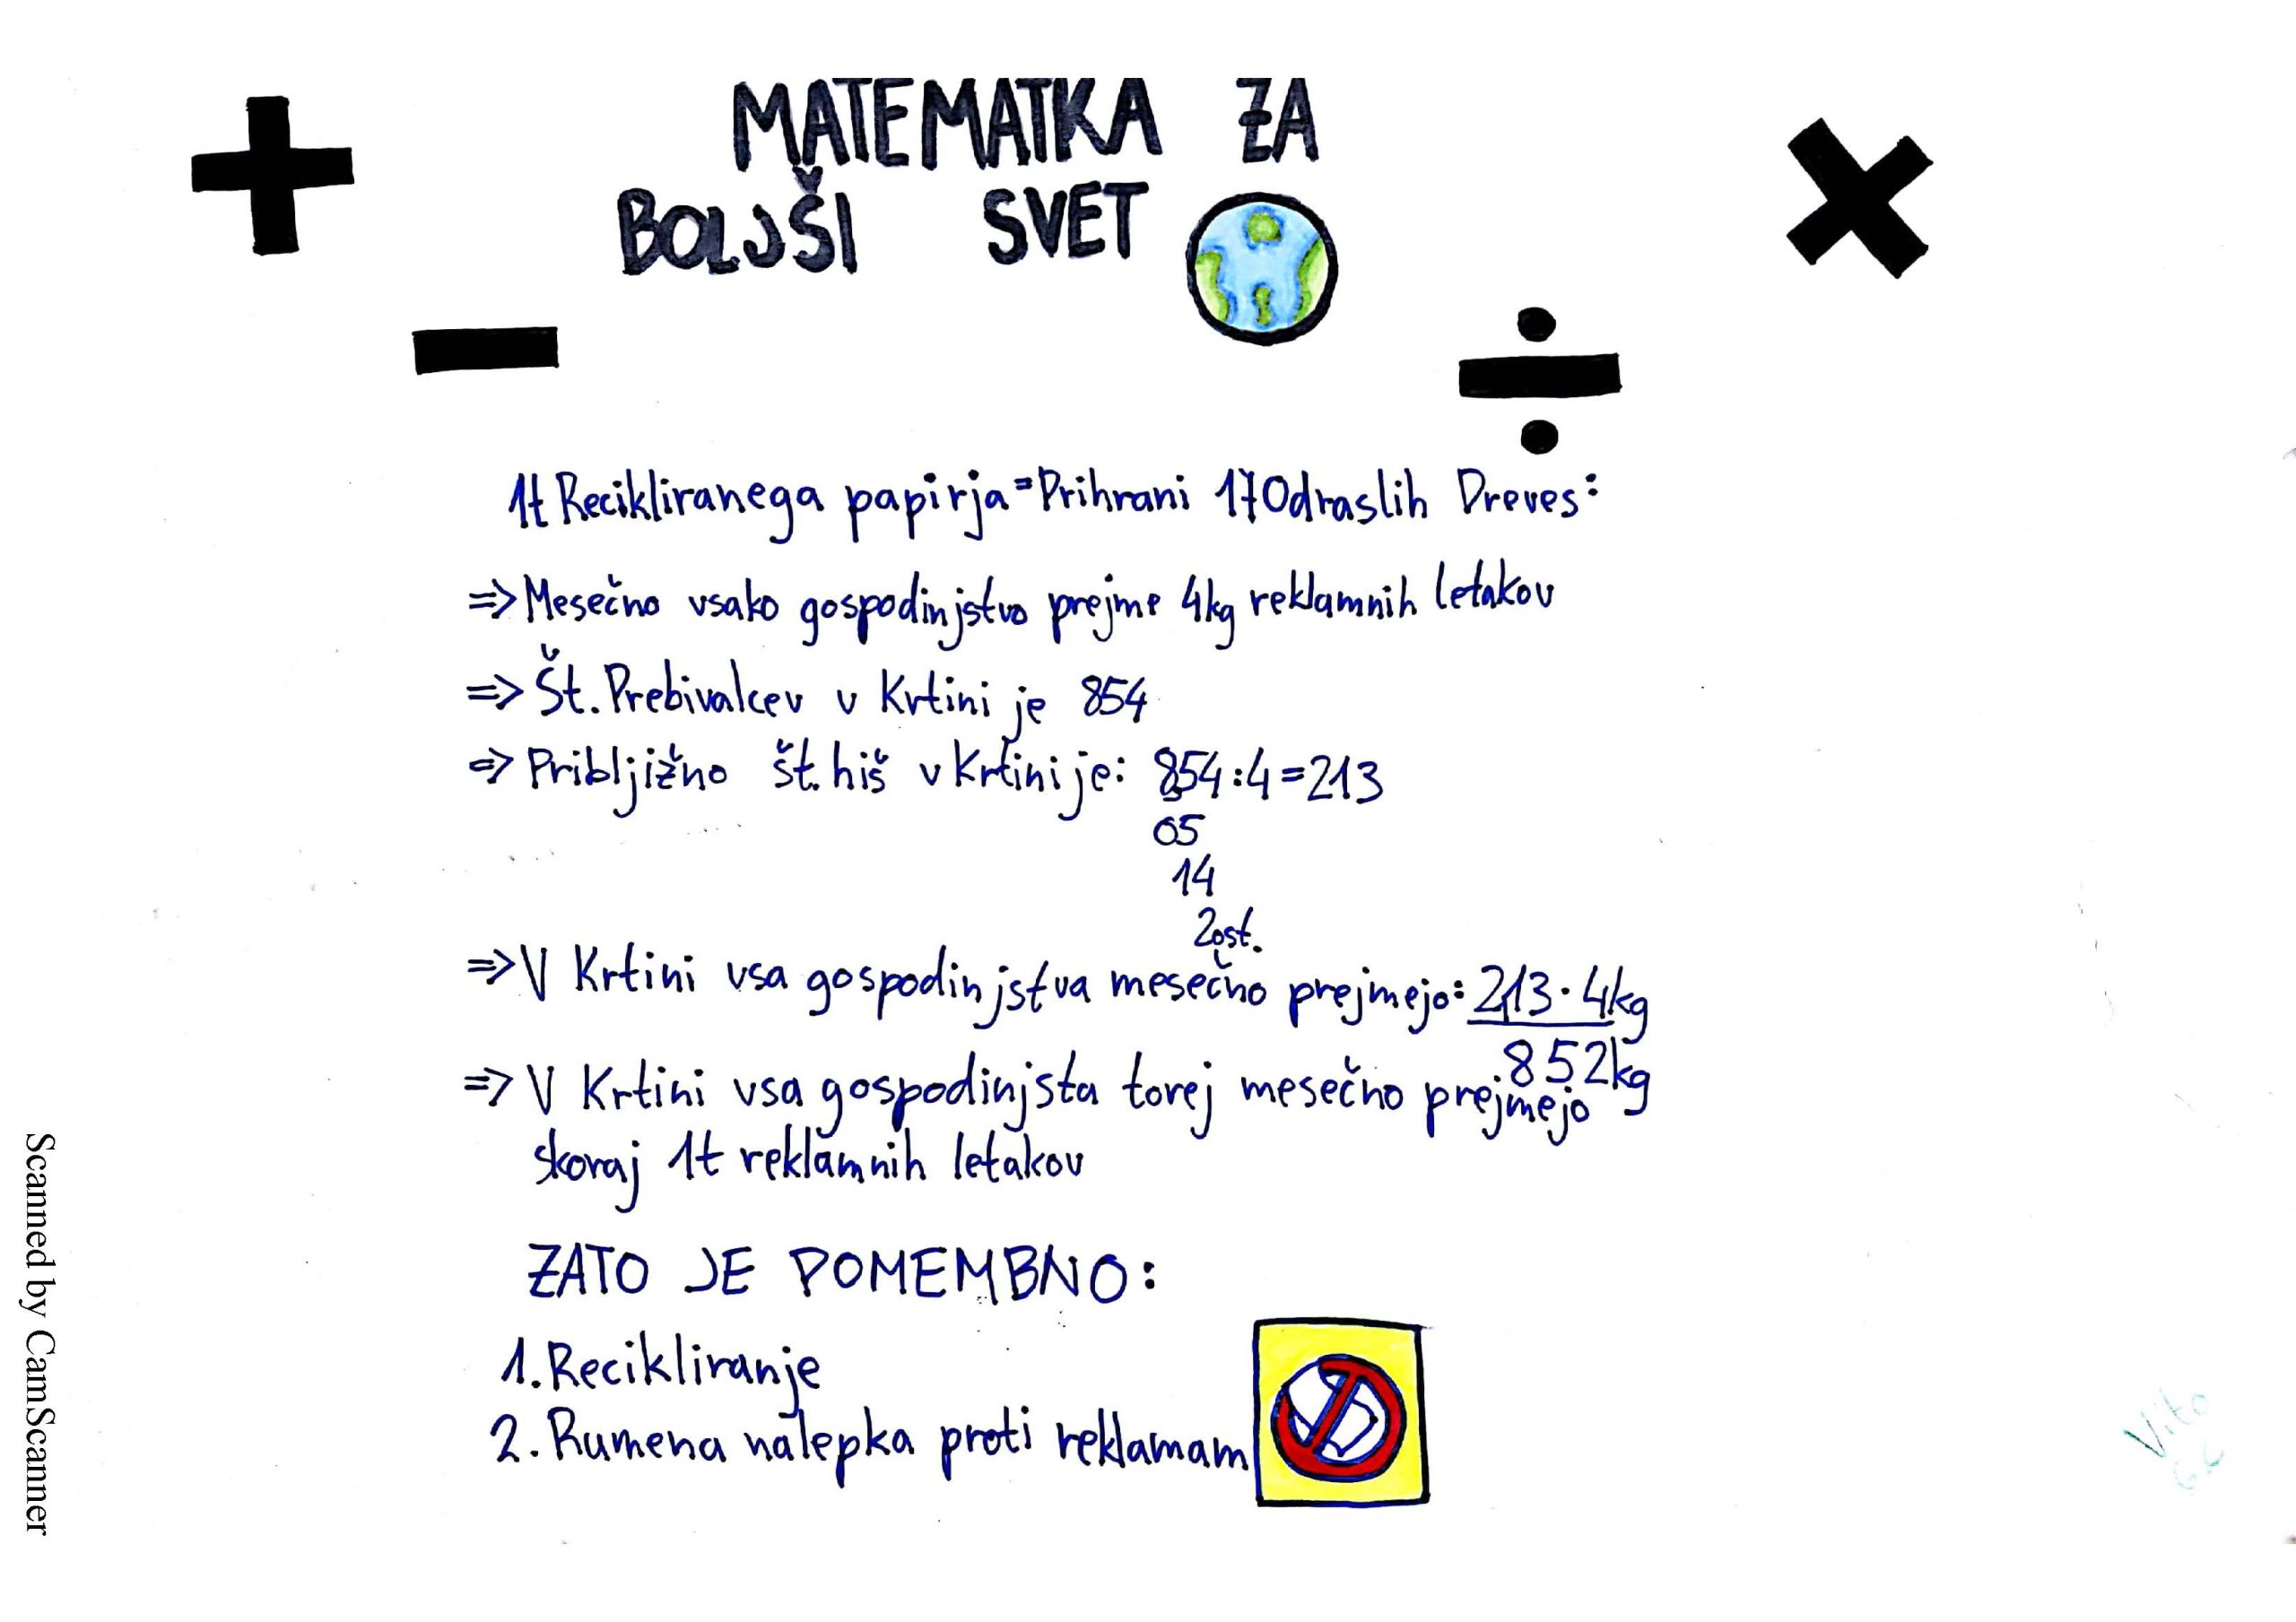 MATEMATKA ZA
BOLJŠI SVET
1t Recikliranega papirja = Prihrani 17 Odraslih Dreves:
=> Mesečno vsako gospodinjstvo prejme 4kg reklamnih letakov
=> Št. Prebivalcev v Krtini je 854
=> Pribljižno št. hiš v Krtini je: 854:4=213
05
14
2ost.
=> V Krtini vsa gospodinjstva mesečno prejmejo: 213·4kg
852kg
=> V Krtini vsa gospodinjsta torej mesečno prejmejo
skoraj 1t reklamnih letakov
ZATO JE POMEMBNO:
1. Recikliranje
2. Rumena nalepka proti reklamam
Vito
6.c
Scanned by CamScanner